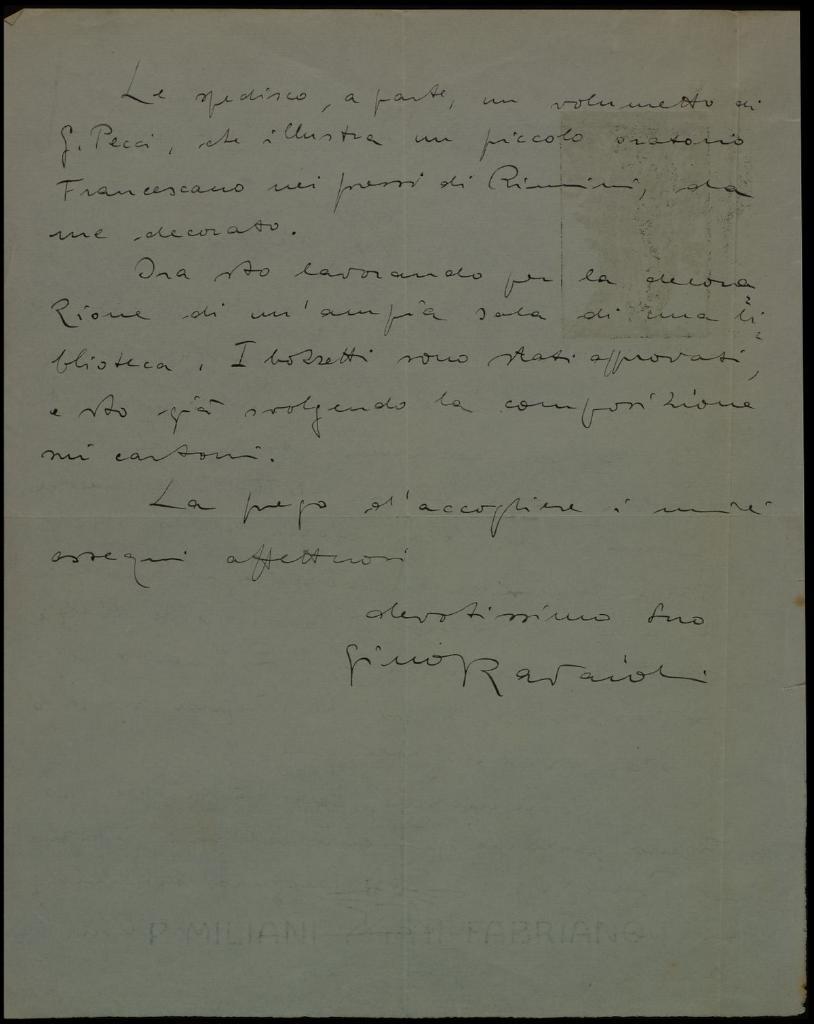 Le spedisco, a parte, un volumetto di
G. Pecci, che illustra un piccolo oratorio
Francescano nei pressi di Rimini, da
me decorato.
Ora sto lavorando per la decora
zione di un'ampia sala di una bi
blioteca. I bozzetti sono stati approvati,
e sto già svolgendo la composizione
sui cartoni.
La prego d'accogliere i miei
ossequi affettuosi
devotissimo Suo
Gino Ravaioli
P. MILIANI FABRIANO